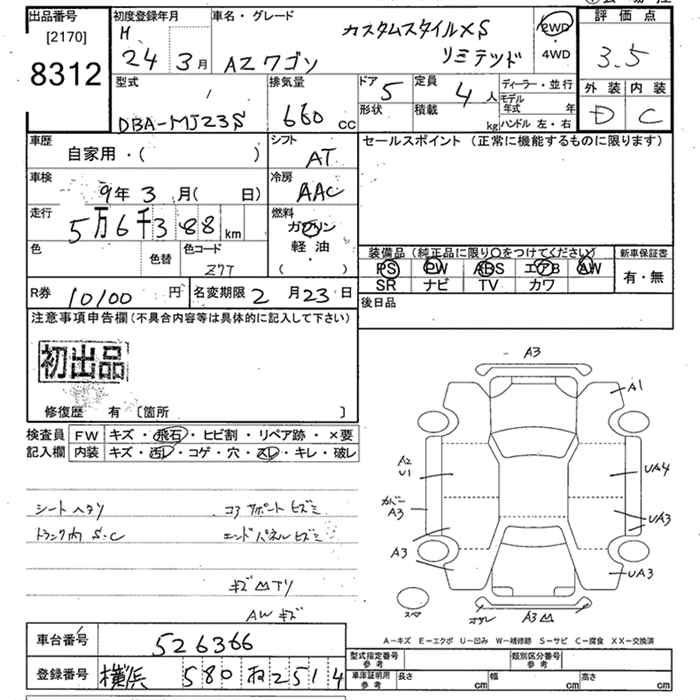 出品番号
[2170]
8312
初度登録年月
H
24 3月
車名・グレード
カスタムスタイルXS
リミテッド
AZワゴン
2WD
・
4WD
評価点
3.5
外装 内装
D C
型式
DBA-MJ23S
排気量
660 cc
ドア 5
定員 4 人
形状
積載 kg
ディーラー・並行
モデル年式 年
ハンドル 左・右
車歴
自家用・( )
シフト
AT
車検
9年 3月( 日)
冷房
AAC
走行
5万6千388 km
燃料
ガソリン
軽油
( )
色
色替
色コード
Z7T
セールスポイント (正常に機能するものに限ります)
装備品 (純正品に限り○をつけてください)
PS PW ABS エアB AW
SR ナビ TV カワ
新車保証書
有・無
R券 10100 円
名変期限 2月23日
後日品
注意事項申告欄(不具合内容等は具体的に記入して下さい)
初出品
修復歴 有 [箇所 ]
検査員
記入欄
FW キズ・飛石・ヒビ割・リペア跡・×要
内装 キズ・汚レ・コゲ・穴・スレ・キレ・破レ
シートヘタリ
トランク内 S・C
コアサポートヒズミ
エンドパネルヒズミ
AWキズ
A3
A1
A2
U1
UA4
カバー
A3
UA3
A3
UA3
スペア
A3
A-キズ E-エクボ U-凹み W-補修跡 S-サビ C-腐食 XX-交換済
車台番号 526366
登録番号 横浜 580 わ 2514
型式指定番号
参考
類別区分番号
参考
車庫証明用
参考
長さ cm
幅 cm
高さ cm